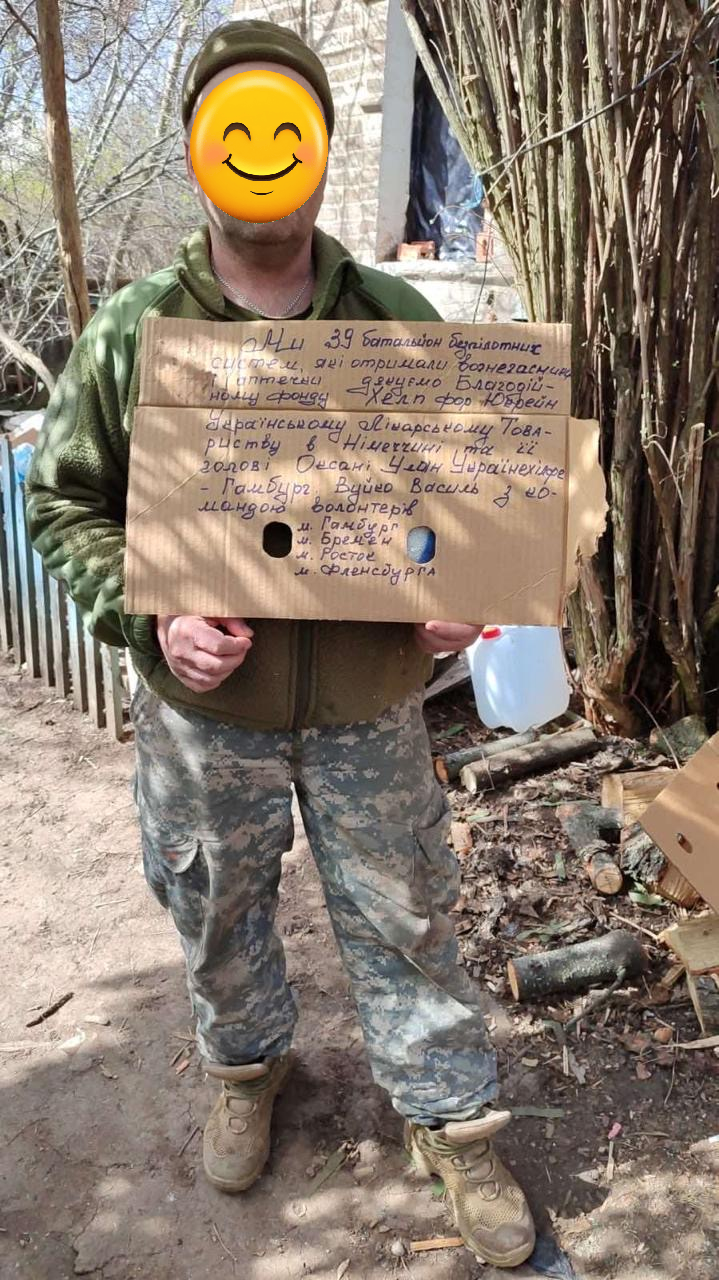 Ми 39 батальйон безпілотних
систем, які отримали вогнегасники
і аптечки дякуємо Благодій-
ному фонду Хелп фор Юкрейн
Українському Лікарському Това-
риству в Німеччині та її
голові Оксані Улан Українехілфе
- Гамбург Вуйко Василь з ко-
мандою волонтерів
м. Гамбург
м. Бремен
м. Росток
м. Фленсбурга